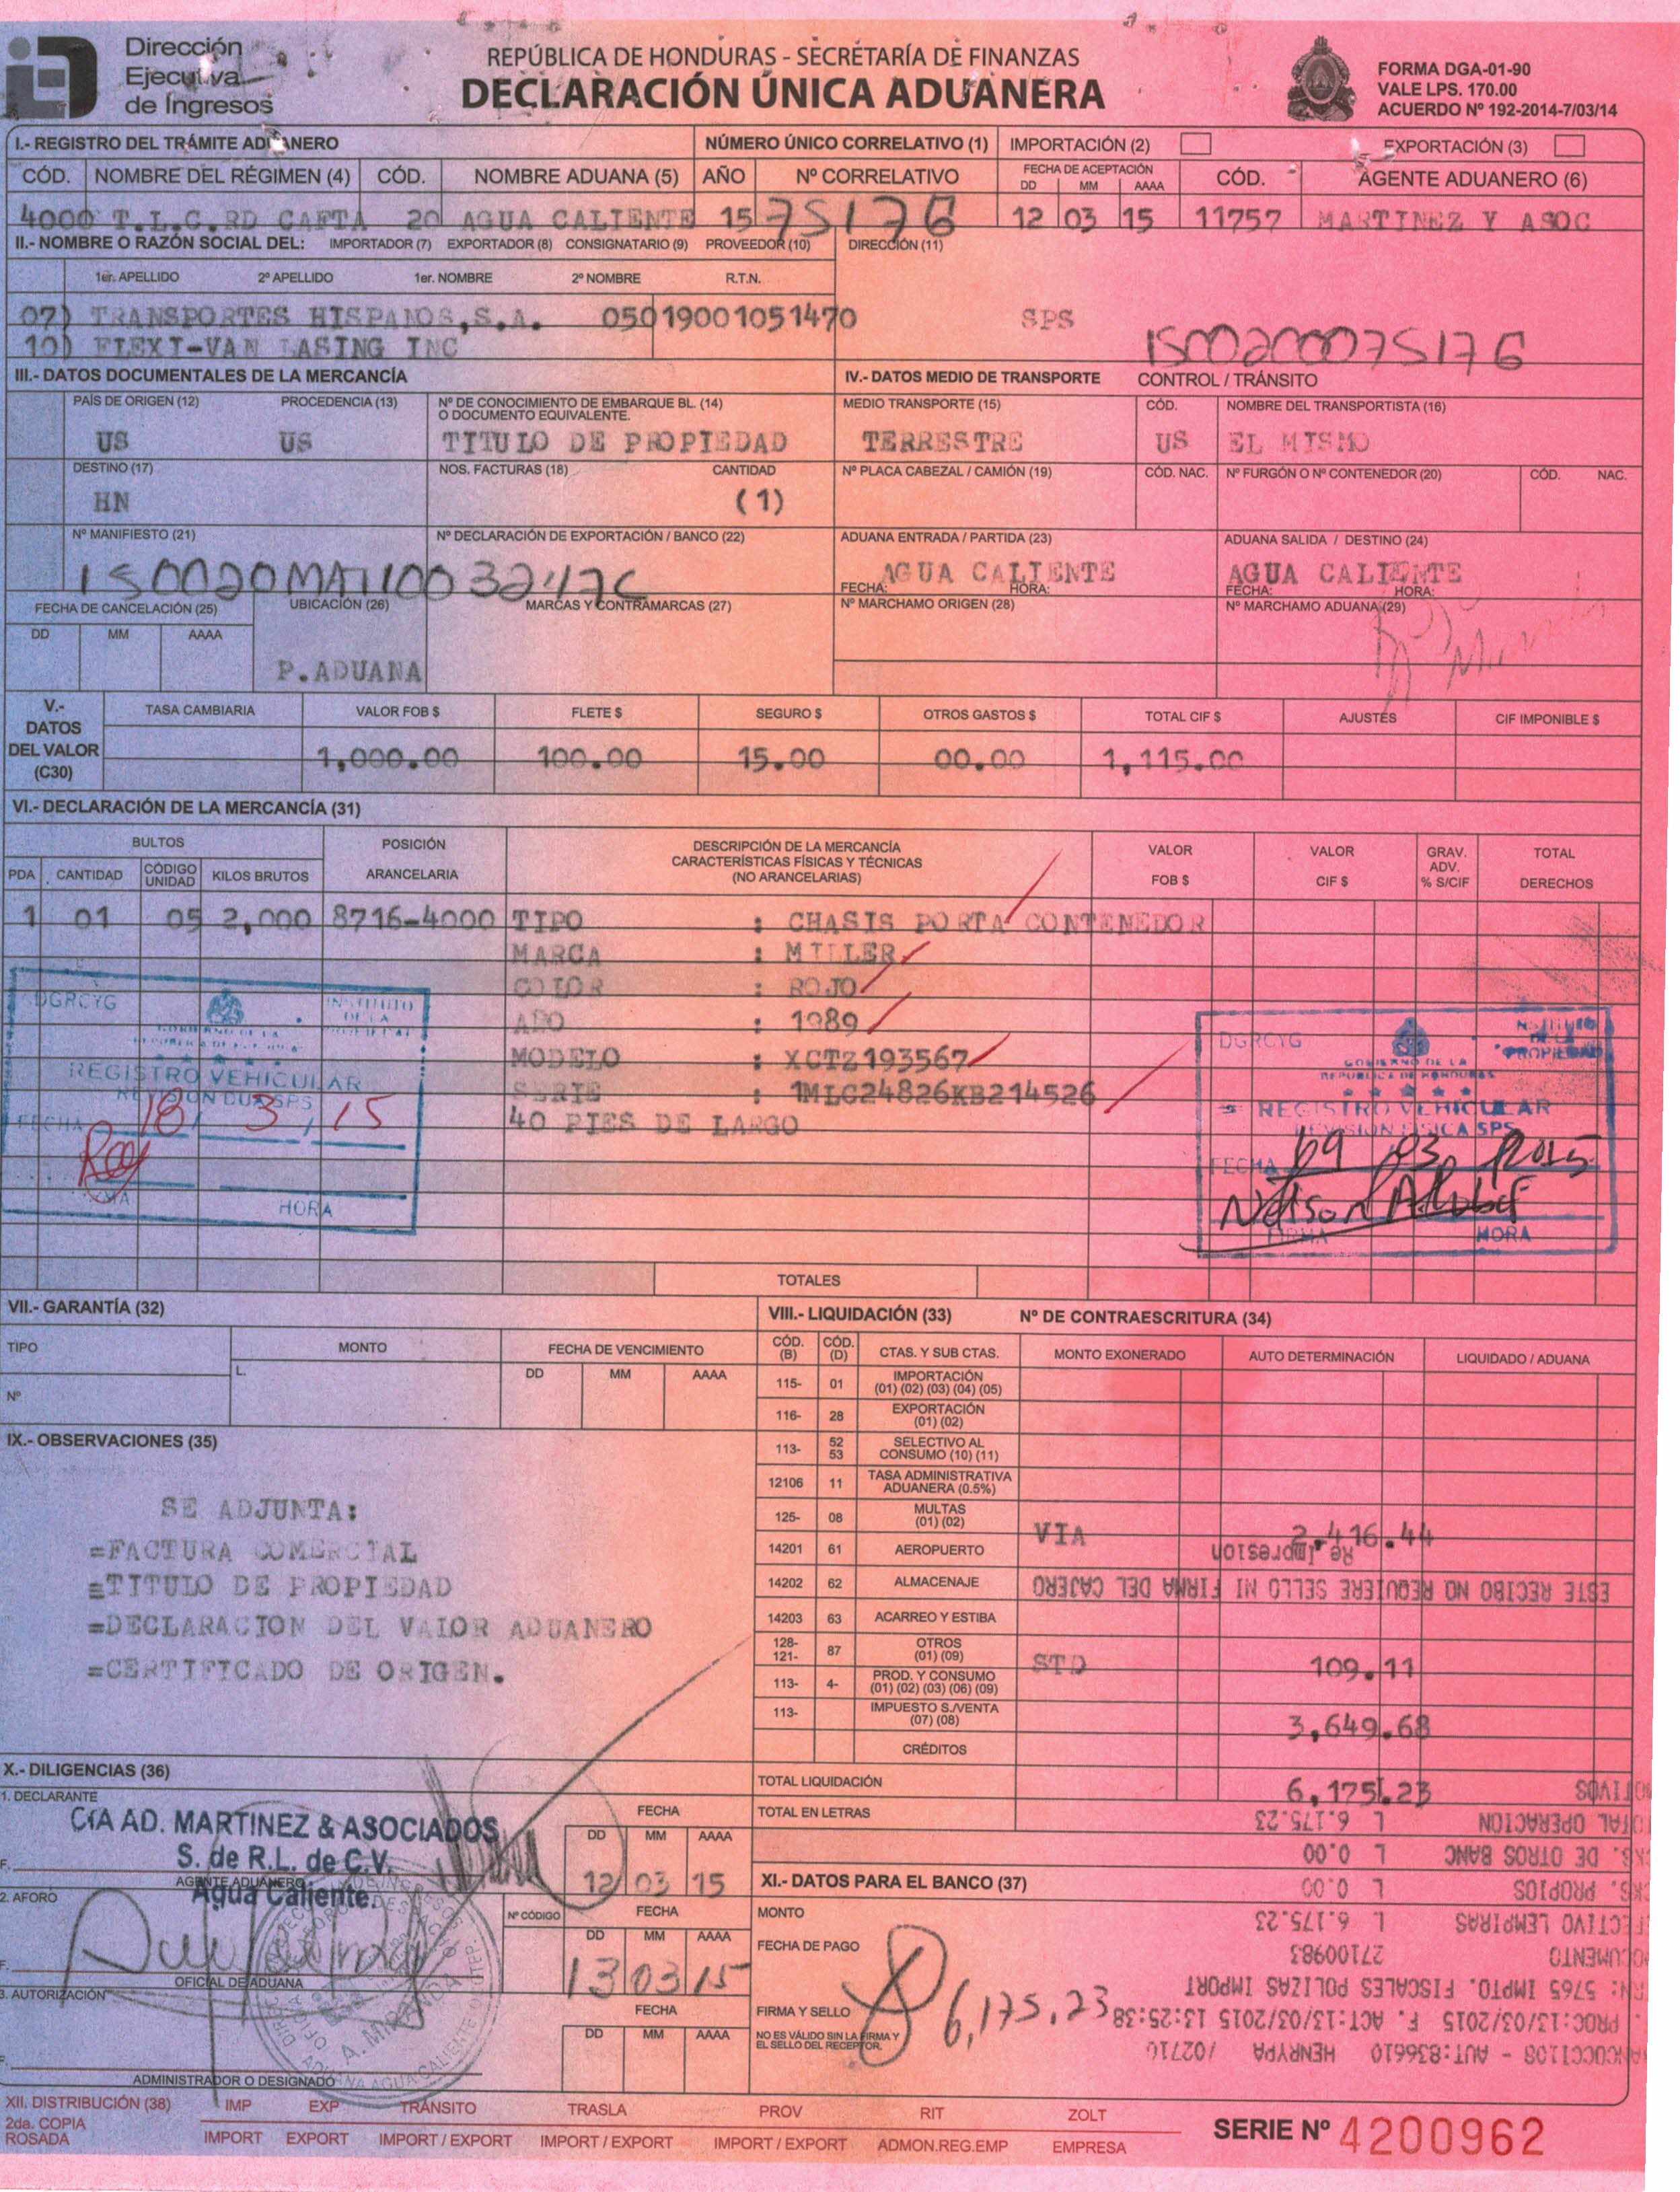 Dirección
Ejecutiva
de Ingresos
REPÚBLICA DE HONDURAS - SECRETARÍA DE FINANZAS
DECLARACIÓN ÚNICA ADUANERA
FORMA DGA-01-90
VALE LPS. 170.00
ACUERDO Nº 192-2014-7/03/14
I.- REGISTRO DEL TRÁMITE ADUANERO
NÚMERO ÚNICO CORRELATIVO (1)
IMPORTACIÓN (2)
EXPORTACIÓN (3)
CÓD. NOMBRE DEL RÉGIMEN (4) CÓD. NOMBRE ADUANA (5) AÑO Nº CORRELATIVO FECHA DE ACEPTACIÓN DD MM AAAA CÓD. AGENTE ADUANERO (6)
4000 T.L.C.RD CAFTA 20 AGUA CALIENTE 15 75176 12 03 15 11757 MARTINEZ Y ASOC
II.- NOMBRE O RAZÓN SOCIAL DEL: IMPORTADOR (7) EXPORTADOR (8) CONSIGNATARIO (9) PROVEEDOR (10) DIRECCIÓN (11)
1er. APELLIDO 2º APELLIDO 1er. NOMBRE 2º NOMBRE R.T.N.
07) TRANSPORTES HISPANOS,S.A. 05019001051470 SPS
10) FLEXI-VAN LASING INC
150020007S176
III.- DATOS DOCUMENTALES DE LA MERCANCÍA
IV.- DATOS MEDIO DE TRANSPORTE CONTROL / TRÁNSITO
PAÍS DE ORIGEN (12) PROCEDENCIA (13) Nº DE CONOCIMIENTO DE EMBARQUE BL. (14) MEDIO TRANSPORTE (15) CÓD. NOMBRE DEL TRANSPORTISTA (16)
O DOCUMENTO EQUIVALENTE.
US US TITULO DE PROPIEDAD TERRESTRE US EL MISMO
DESTINO (17) NOS. FACTURAS (18) CANTIDAD Nº PLACA CABEZAL / CAMIÓN (19) CÓD. NAC. Nº FURGÓN O Nº CONTENEDOR (20) CÓD. NAC.
HN (1)
Nº MANIFIESTO (21) Nº DECLARACIÓN DE EXPORTACIÓN / BANCO (22) ADUANA ENTRADA / PARTIDA (23) ADUANA SALIDA / DESTINO (24)
AGUA CALIENTE AGUA CALIENTE
FECHA: HORA: FECHA: HORA:
FECHA DE CANCELACIÓN (25) UBICACIÓN (26) MARCAS Y CONTRAMARCAS (27) Nº MARCHAMO ORIGEN (28) Nº MARCHAMO ADUANA (29)
DD MM AAAA
P.ADUANA
V.- DATOS DEL VALOR (C30)
TASA CAMBIARIA VALOR FOB $ FLETE $ SEGURO $ OTROS GASTOS $ TOTAL CIF $ AJUSTES CIF IMPONIBLE $
1,000.00 100.00 15.00 00.00 1,115.00
VI.- DECLARACIÓN DE LA MERCANCÍA (31)
BULTOS POSICIÓN ARANCELARIA DESCRIPCIÓN DE LA MERCANCÍA VALOR FOB $ VALOR CIF $ GRAV. ADV. % S/CIF TOTAL DERECHOS
CARACTERÍSTICAS FÍSICAS Y TÉCNICAS
(NO ARANCELARIAS)
PDA CANTIDAD CÓDIGO UNIDAD KILOS BRUTOS
1 01 05 2,000 8716-4000 TIPO : CHASIS PORTA CONTENEDOR
MARCA : MILLER
COLOR : ROJO
AÑO : 1989
MODELO : XCTZ193567
SERIE : 1MLC24826KB214526
40 PIES DE LARGO
DGRCYG
INSTITUTO DE LA PROPIEDAD
GOBIERNO DE LA
REPUBLICA DE HONDURAS
REGISTRO VEHICULAR
REVISION DUA SPS
FECHA 18 / 3 / 15
HORA
DGRCYG
INSTITUTO DE LA PROPIEDAD
GOBIERNO DE LA
REPUBLICA DE HONDURAS
REGISTRO VEHICULAR
REVISION FISICA SPS
FECHA 09 03 2015
Nelson
FIRMA HORA
TOTALES
VII.- GARANTÍA (32)
VIII.- LIQUIDACIÓN (33) Nº DE CONTRAESCRITURA (34)
TIPO MONTO FECHA DE VENCIMIENTO
L. DD MM AAAA
Nº
CÓD. (B) CÓD. (D) CTAS. Y SUB CTAS. MONTO EXONERADO AUTO DETERMINACIÓN LIQUIDADO / ADUANA
115- 01 IMPORTACIÓN (01) (02) (03) (04) (05)
116- 28 EXPORTACIÓN (01) (02)
113- 52 53 SELECTIVO AL CONSUMO (10) (11)
12106 11 TASA ADMINISTRATIVA ADUANERA (0.5%)
125- 08 MULTAS (01) (02) VIA 2,416.44
14201 61 AEROPUERTO
Re Impresion
14202 62 ALMACENAJE
ESTE RECIBO NO REQUIERE SELLO NI FIRMA DEL CAJERO
14203 63 ACARREO Y ESTIBA
128- 121- 87 OTROS (01) (09) STD 109.11
113- 4- PROD. Y CONSUMO (01) (02) (03) (06) (09)
113- IMPUESTO S./VENTA (07) (08) 3,649.68
CRÉDITOS
TOTAL LIQUIDACIÓN 6,175.23
TOTAL EN LETRAS
IX.- OBSERVACIONES (35)
SE ADJUNTA:
=FACTURA COMERCIAL
=TITULO DE PROPIEDAD
=DECLARACION DEL VALOR ADUANERO
=CERTIFICADO DE ORIGEN.
X.- DILIGENCIAS (36)
1. DECLARANTE
CIA AD. MARTINEZ & ASOCIADOS
S. de R.L. de C.V.
Agua Caliente.
F.
AGENTE ADUANERO
FECHA
DD MM AAAA
12 03 15
2. AFORO
Nº CÓDIGO FECHA
DD MM AAAA
13 03 15
F.
OFICIAL DE ADUANA
A. MIRANDA
ADUANA AGUA CALIENTE
3. AUTORIZACIÓN
FECHA
DD MM AAAA
F.
ADMINISTRADOR O DESIGNADO
XI.- DATOS PARA EL BANCO (37)
MONTO
FECHA DE PAGO
FIRMA Y SELLO
NO ES VÁLIDO SIN LA FIRMA Y
EL SELLO DEL RECEPTOR.
6,175.23
AUT:836610 HENRYPA /02710
PROC:13/03/2015 F. ACT:13/03/2015 13:25:38
5765 IMPTO. FISCALES POLIZAS IMPORT
27100983
LEMPIRAS L 6.175.23
PROPIOS L 0.00
DE OTROS BANC L 0.00
TOTAL OPERACION L 6.175.23
XII. DISTRIBUCIÓN (38)
2da. COPIA
ROSADA
IMP EXP TRÁNSITO TRASLA PROV RIT ZOLT
IMPORT EXPORT IMPORT / EXPORT IMPORT / EXPORT IMPORT / EXPORT ADMON.REG.EMP EMPRESA
SERIE Nº 4200962